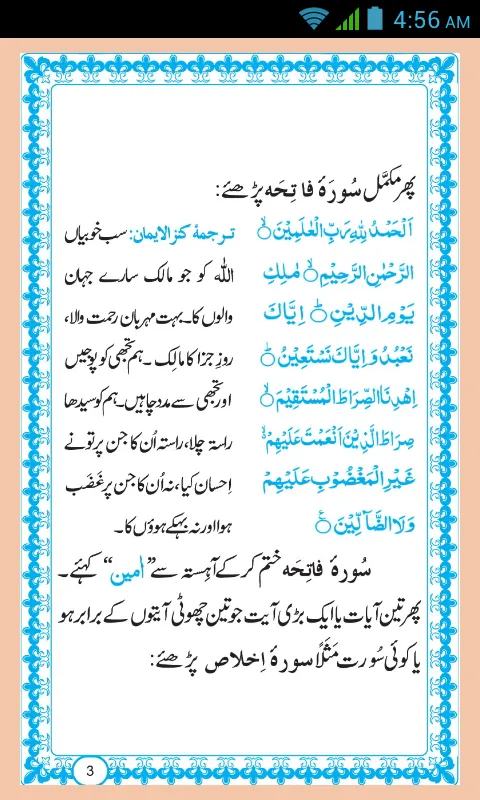 4:56 AM
پھر مکمَّل سُورَۂ فاتِحَہ پڑھئے:
اَلْحَمْدُ لِلّٰهِ رَبِّ الْعٰلَمِیْنَ ۙ
الرَّحْمٰنِ الرَّحِیْمِ ۙ مٰلِكِ
یَوْمِ الدِّیْنِ ؕ اِیَّاكَ
نَعْبُدُ وَ اِیَّاكَ نَسْتَعِیْنُ ؕ
اِهْدِنَا الصِّرَاطَ الْمُسْتَقِیْمَ ۙ
صِرَاطَ الَّذِیْنَ اَنْعَمْتَ عَلَیْهِمْ ۙ
غَیْرِ الْمَغْضُوْبِ عَلَیْهِمْ
وَ لَا الضَّآلِّیْنَ ۠
ترجمۂ کنزالایمان: سب خوبیاں
اللہ کو جو مالک سارے جہان
والوں کا۔ بہت مہربان رحمت والا،
روزِ جزا کا مالِک ۔ ہم تجھی کو پوجیں
اور تجھی سے مدد چاہیں۔ ہم کو سیدھا
راستہ چلا، راستہ اُن کا جن پر تو نے
اِحسان کیا، نہ اُن کا جن پر غَضَب
ہوا اور نہ بہکے ہوؤں کا۔
سُورۂ فاتِحَہ ختم کرکے آہِستہ سے ”اٰمین“ کہئے۔
پھر تین آیات یا ایک بڑی آیت جو تین چھوٹی آیتوں کے برابر ہو
یا کوئی سُورت مَثَلًا سورۂ اِخلاص پڑھئے:
3